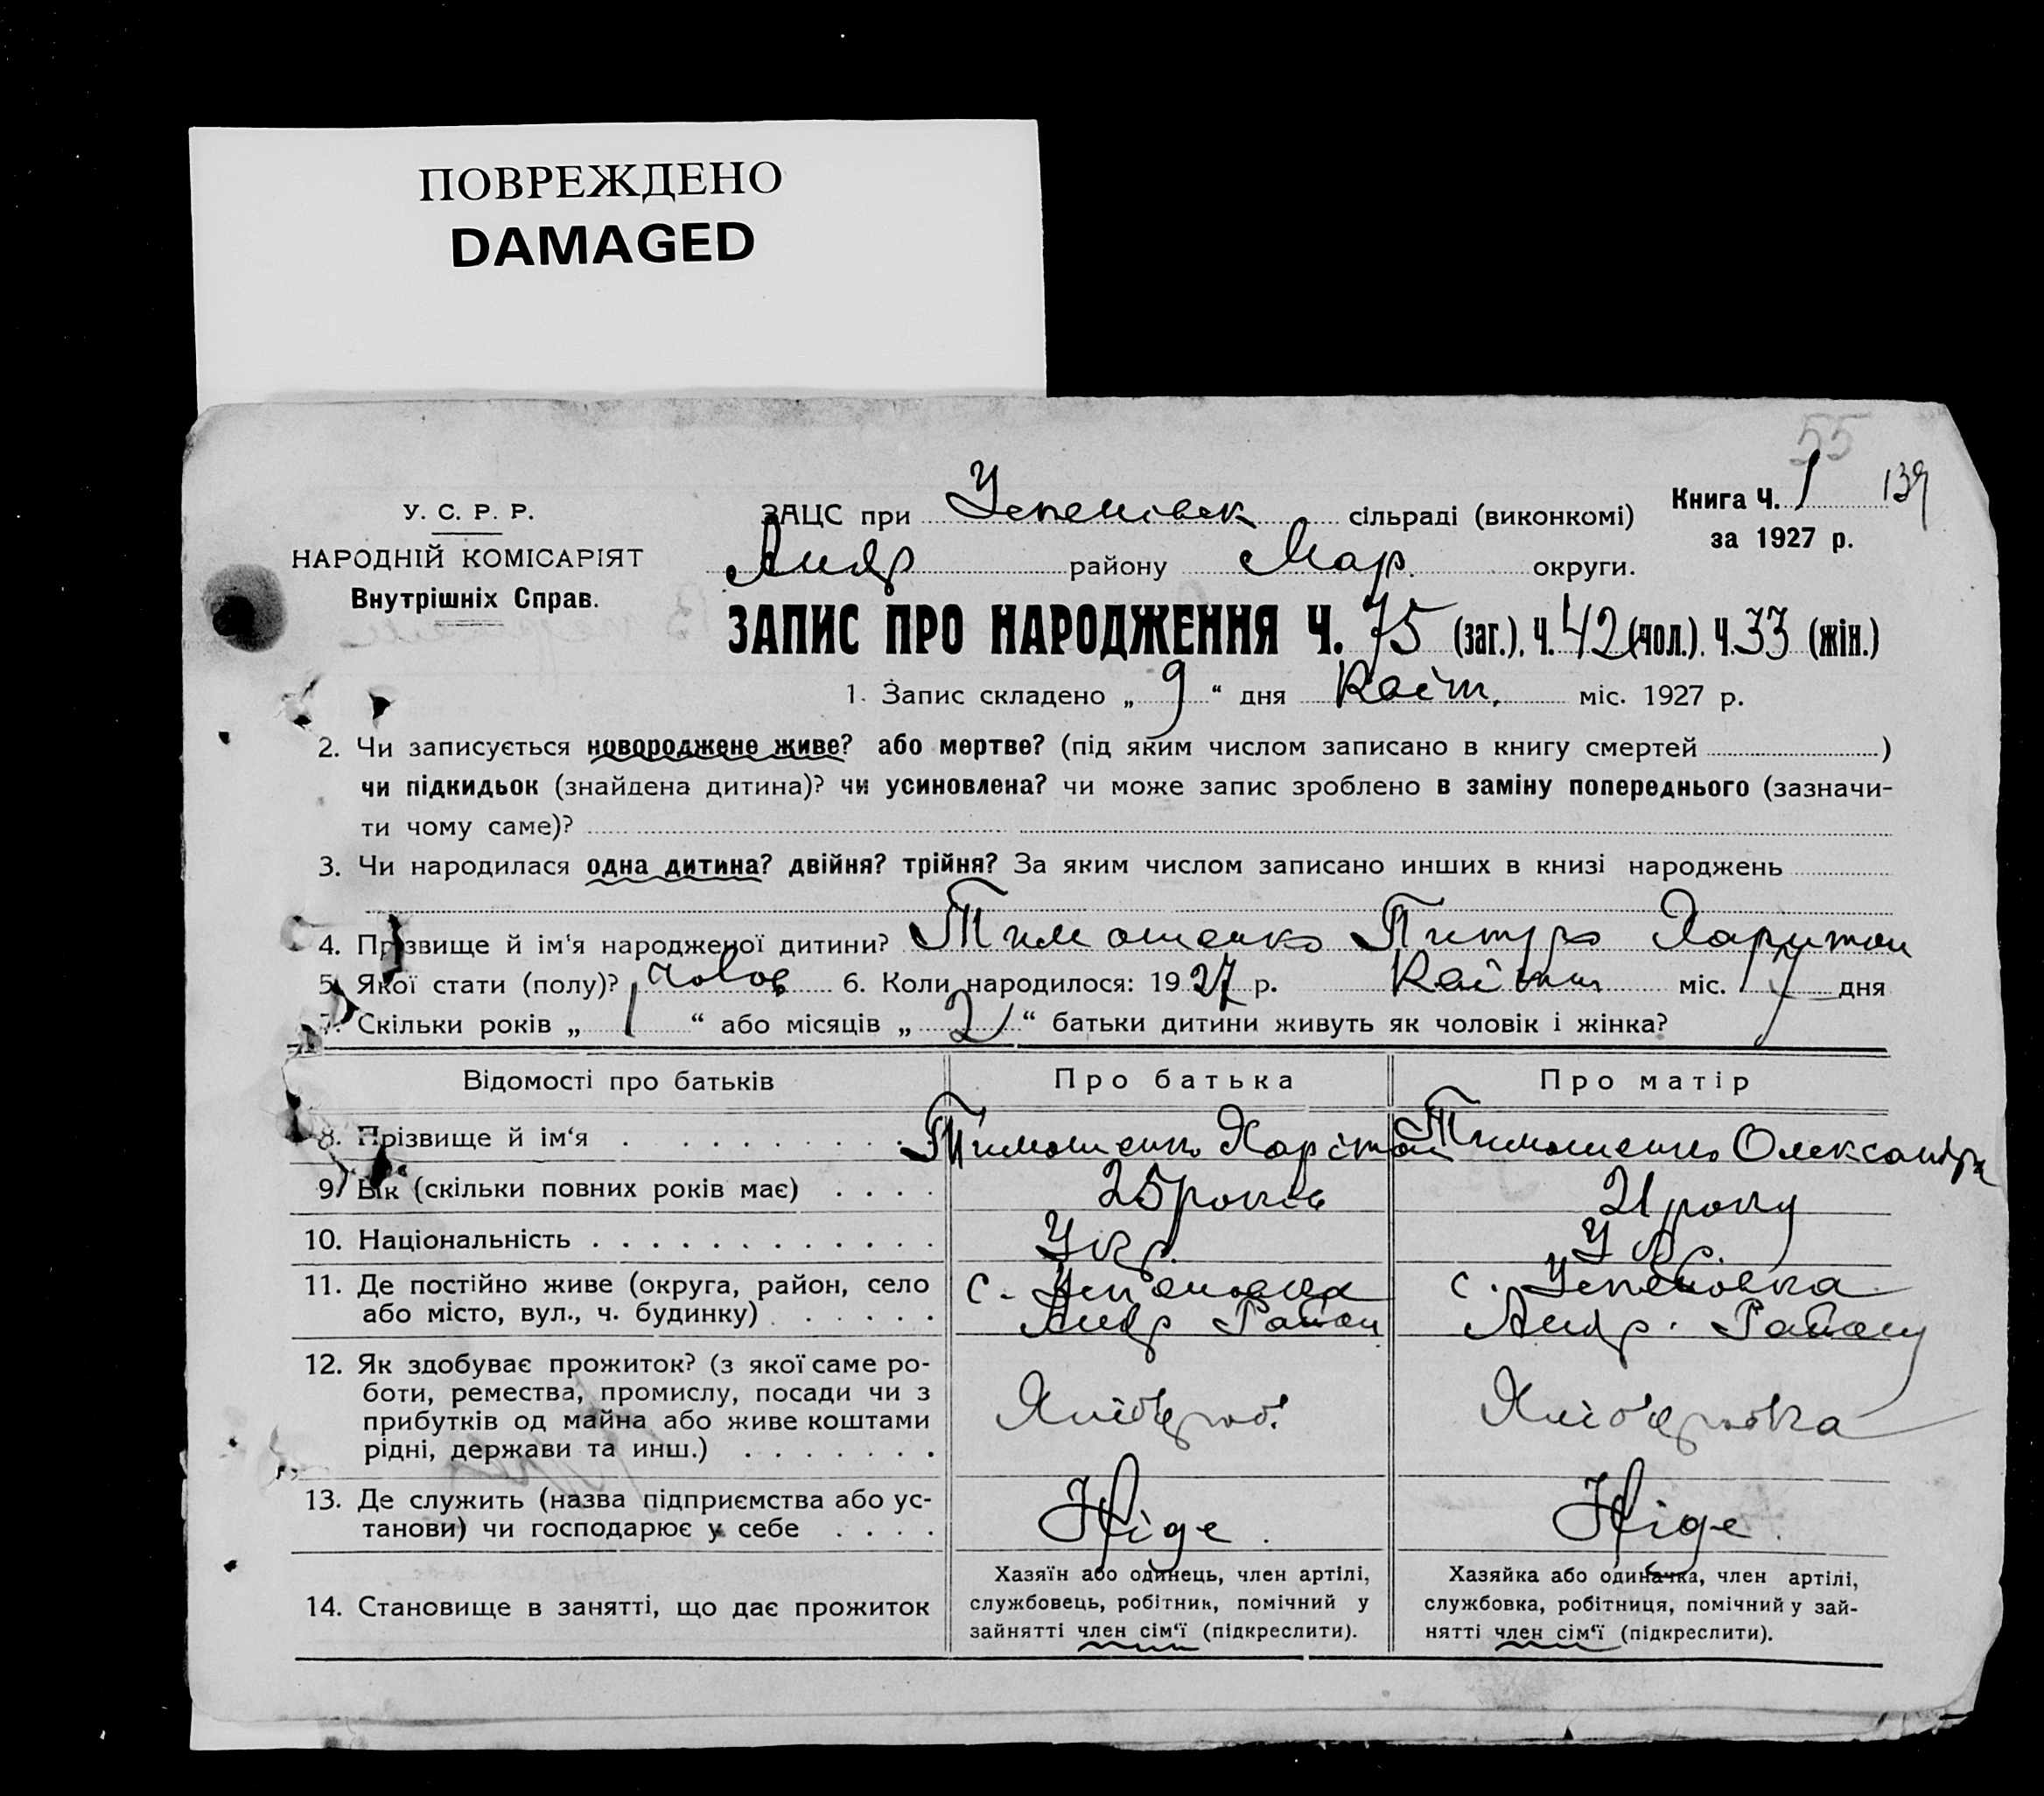 ПОВРЕЖДЕНО
DAMAGED
55
У. С. Р. Р.
НАРОДНІЙ КОМІСАРІЯТ
Внутрішніх Справ.
ЗАЦС при Успенівск сільраді (виконкомі)
Книга Ч. 1 139
за 1927 р.
Андр району Мар. округи.
ЗАПИС ПРО НАРОДЖЕННЯ Ч. 75 (заг.). Ч. 42 (чол.). Ч. 33 (жін.)
1. Запис складено „ 9 “ дня Квіт. міс. 1927 р.
2. Чи записується новороджене живе? або мертве? (під яким числом записано в книгу смертей )
чи підкидьок (знайдена дитина)? чи усиновлена? чи може запис зроблено в заміну попереднього (зазначи-
ти чому саме)?
3. Чи народилася одна дитина? двійня? трійня? За яким числом записано инших в книзі народжень
4. Прізвище й ім'я народженої дитини? Тимошенко Питро Харитон
5. Якої стати (полу)? Чолов 6. Коли народилося: 1927 р. Квітн міс. 7 дня
7. Скільки років „ 1 “ або місяців „ 2 “ батьки дитини живуть як чоловік і жінка?
Відомості про батьків Про батька Про матір
8. Прізвище й ім'я Тимошенко Харітон Тимошенко Олександра
9. Вік (скільки повних років має) 25 років 21 року
10. Національність Укр. Укр.
11. Де постійно живе (округа, район, село с. Успеновка с. Успеновка
або місто, вул., ч. будинку) Андр Район Андр. Району
12. Як здобуває прожиток? (з якої саме ро-
боти, ремества, промислу, посади чи з
прибутків од майна або живе коштами Хлібороб. Хліборобка
рідні, держави та инш.)
13. Де служить (назва підприємства або ус-
танови) чи господарює у себе Ніде. Ніде.
14. Становище в занятті, що дає прожиток
Хазяїн або одинець, член артілі,
службовець, робітник, помічний у
зайнятті член сім'ї (підкреслити).
Хазяйка або одиначка, член артілі,
службовка, робітниця, помічний у зай-
нятті член сім'ї (підкреслити).